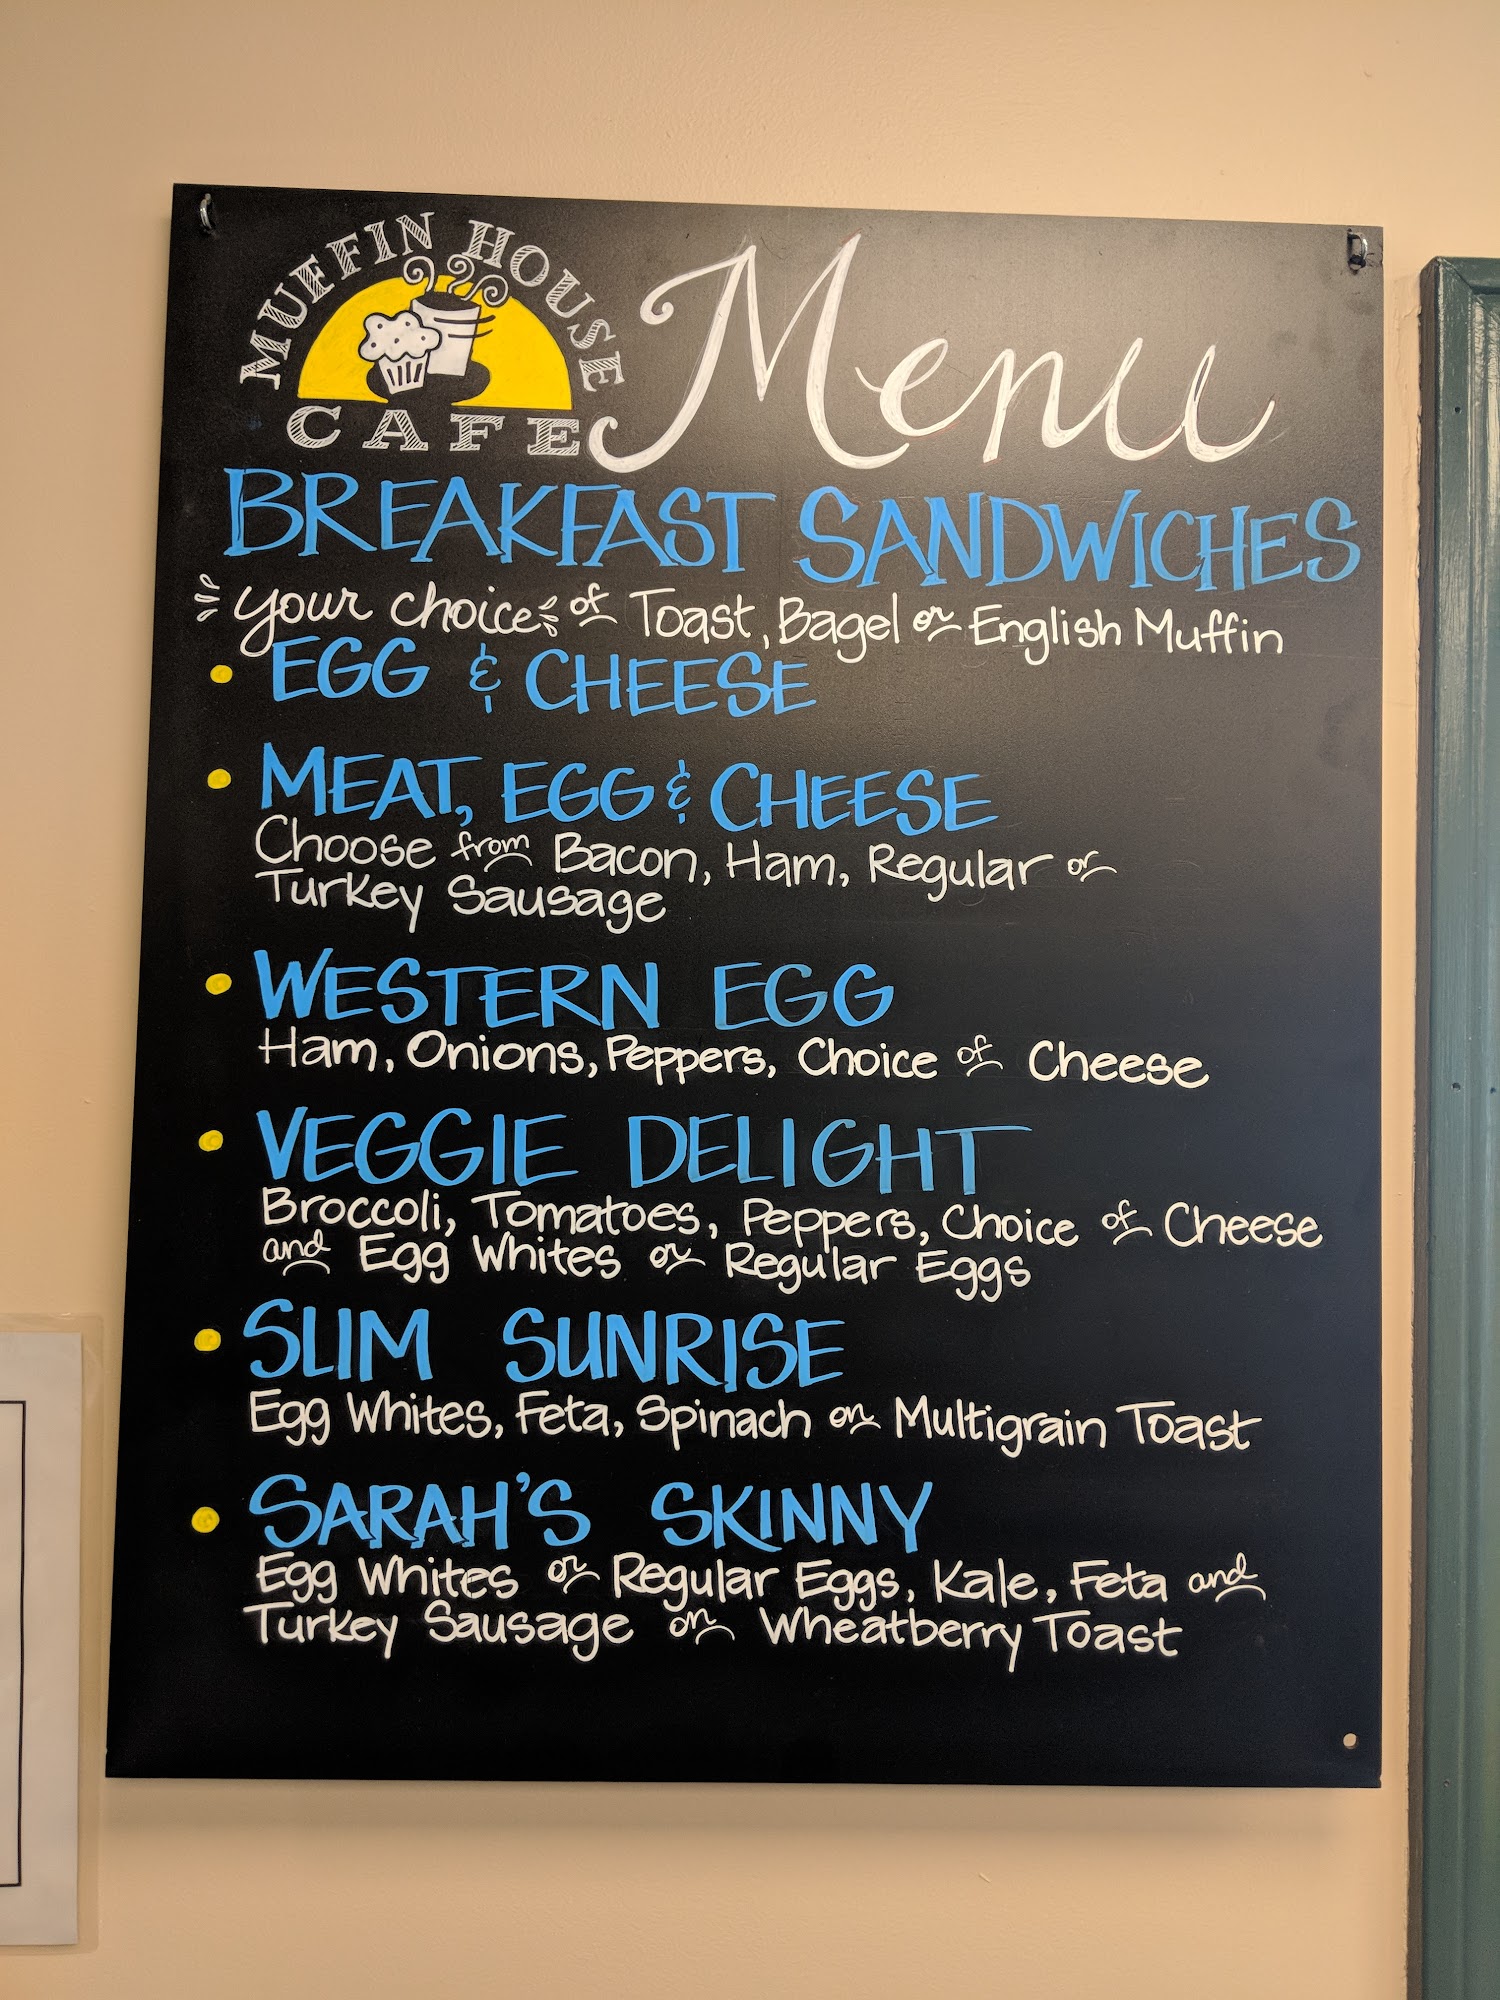 MUFFIN HOUSE
CAFE
Menu
BREAKFAST SANDWICHES
your choice of Toast, Bagel or English Muffin
EGG & CHEESE
MEAT, EGG & CHEESE
Choose from Bacon, Ham, Regular or
Turkey Sausage
WESTERN EGG
Ham, Onions, Peppers, Choice of Cheese
VEGGIE DELIGHT
Broccoli, Tomatoes, Peppers, Choice of Cheese
and Egg Whites or Regular Eggs
SLIM SUNRISE
Egg Whites, Feta, Spinach on Multigrain Toast
SARAH'S SKINNY
Egg Whites or Regular Eggs, Kale, Feta and
Turkey Sausage on Wheatberry Toast